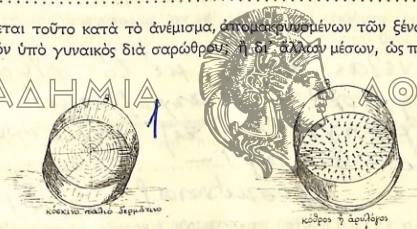 εται τοῦτο κατὰ τὸ ἀνέμισμα, ἀπομακρυνομένων τῶν ξένω
όν ὑπὸ γυναικὸς διὰ σαρώθρου; ἢ δι' ἄλλων μέσων, ὡς π
ΑΔΗΜΙΑ ΑΘ
1
κόσκινο παλιὸ δερμάτινο
κόθρος ἢ ἀριλόγος